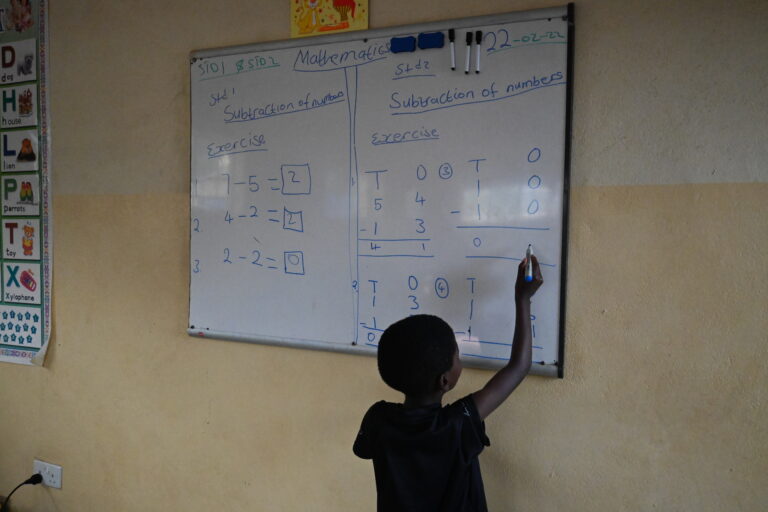 D
dog
H
house
L
lion
P
parrots
T
toy
X
Xylophone
STD1 & STD2 Mathematics 22-02-22
Std 1
Subtraction of numbers
Exercise
1. 7-5 = 2
2. 4-2 = 2
3. 2-2 = 0
Std2
Subtraction of numbers
Exercise
1. T O
5 4
-1 3
4 1
③ T O
1 0
-1 0
0
2. T O
1 3
-1
0
④ T
1
-1 1